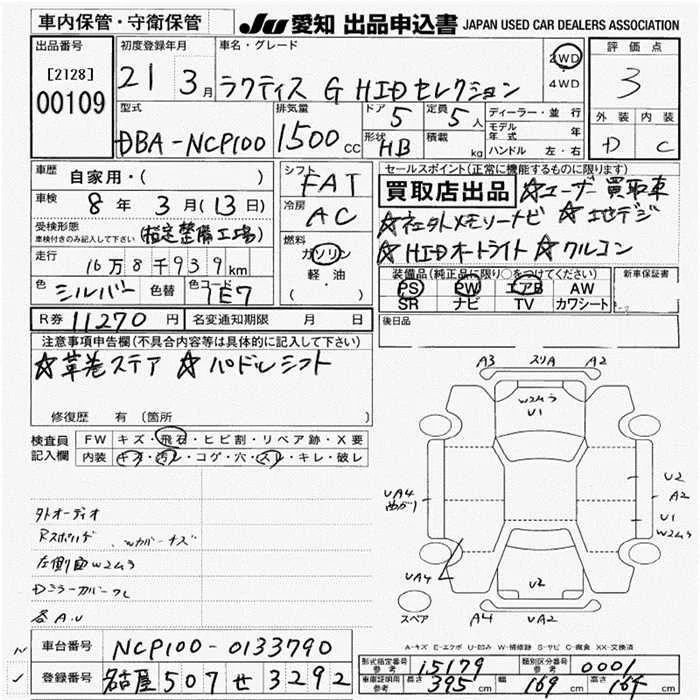 車内保管・守衛保管
JU 愛知 出品申込書 JAPAN USED CAR DEALERS ASSOCIATION
出品番号
[2128]
00109
初度登録年月
21 3月
車名・グレード
ラクティス G HIDセレクション
2WD
・
4WD
評価点
3
外装 内装
D C
型式
DBA-NCP100
排気量
1500cc
ドア 5 定員 5人
形状 HB 積載 kg
ディーラー・並行
モデル年式 年
ハンドル 左・右
車歴
自家用・( )
車検
8年 3月(13日)
受検形態
車検付きのみ記入して下さい
(指定整備工場)
走行
16万8千939km
色 シルバー 色替 色コード 1E7
シフト
FAT
冷房
AC
燃料
ガソリン
軽油
( ・ )
セールスポイント(正常に機能するものに限ります)
買取店出品 ☆ユーザー買取車
☆社外メモリーナビ ☆地デジ
☆HIDオートライト ☆クルコン
装備品(純正品に限り○をつけてください)
PS PW エアB AW
SR ナビ TV カワシート
新車保証書
後日品
R券 11270円 名変通知期限 月 日
注意事項申告欄(不具合内容等は具体的に記入して下さい)
☆革巻ステア ☆パドルシフト
修復歴 有 (箇所 )
検査員
記入欄
FW キズ・飛石・ヒビ割・リペア跡・X要
内装 キズ・汚レ・コゲ・穴・スレ・キレ・破レ
外オーディオ
左側面W2ムラ
Dミラーカバーワレ
各A.U
A3 スリA A2
W2ムラ
U1
UA4
曲がり
U2
A2
U1
W2ムラ
UA4
U2
スペア
A4 UA2
A-キズ E-エクボ U-凹み W-補修跡 S-サビ C-腐食 XX-交換済
車台番号 NCP100-0133790
登録番号 名古屋 507 せ 3292
形式指定番号
参考
15179
類別区分番号
参考
0001
車庫証明用
参考
長さ 395cm 幅 169cm 高さ 164cm